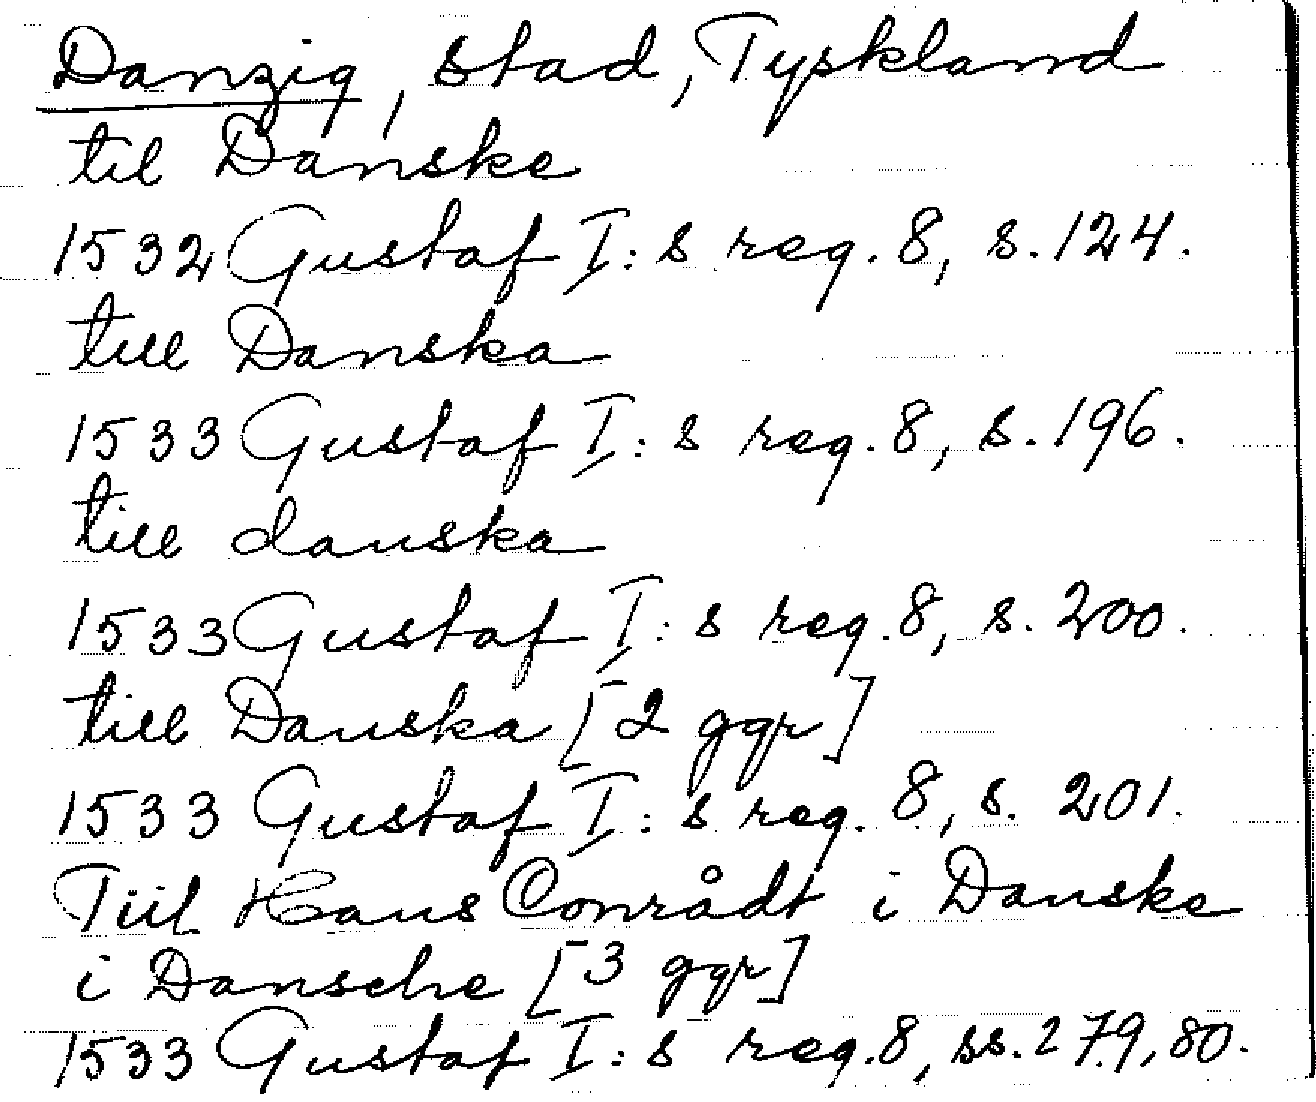 Danzig, stad, Tyskland
til Danske
1532 Gustaf I:s reg. 8, s. 124.
till Danska
1533 Gustaf I:s reg. 8, s. 196.
till danska
1533 Gustaf I:s reg. 8, s. 200.
till Danska [2 ggr]
1533 Gustaf I:s reg. 8, s. 201.
Tiil Hans Conrådt i Danske
i Dansche [3 ggr]
1533 Gustaf I:s reg. 8, ss. 279, 80.